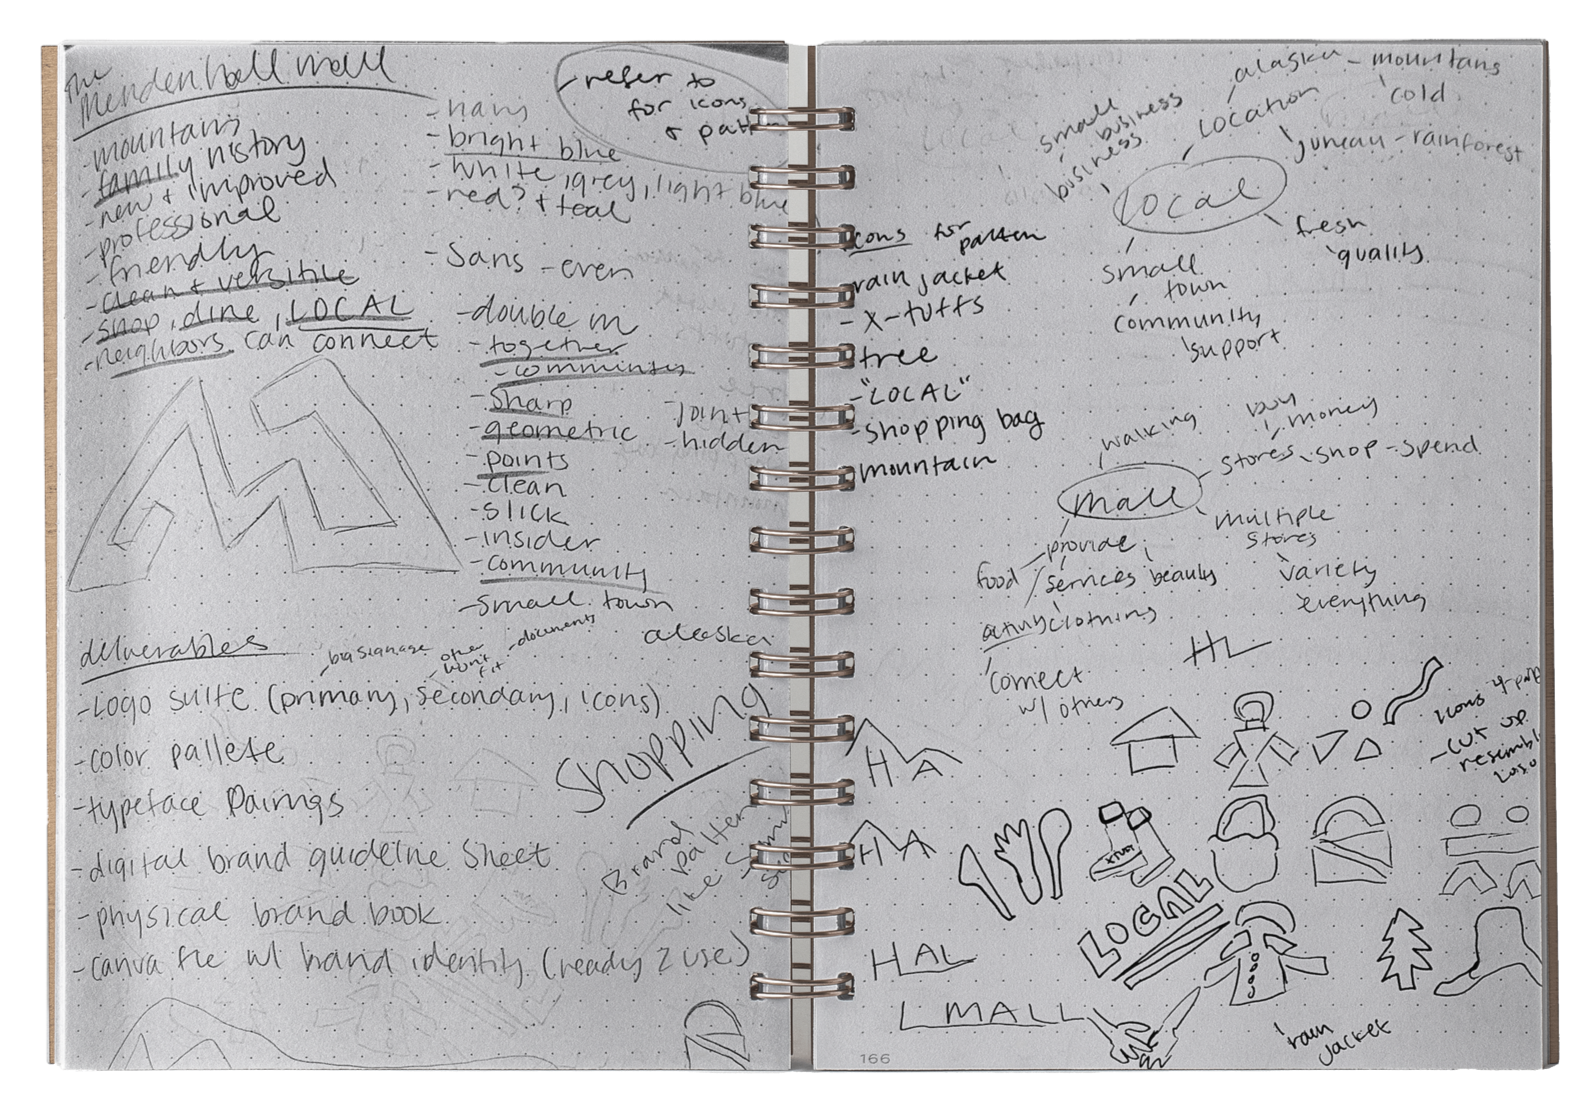 The
Mendenhall mall
- mountains
- family history
- new + improved
- professional
- friendly
- clean + versitile
- shop, dine, LOCAL
- neighbors can connect
- navy
- bright blue
- white, grey, light blue
- red? + teal
- refer to
for icons
+ patt
- Sans - even
- double m
- together
- community
- Sharp
- geometric
- points
- clean
- slick
- insider
- community
- small town
- joint
- hidden
alaska
deliverables
- big signage
- one
won't
fit
- documents
- Logo suite (primary, secondary, icons)
- color pallete
- typeface Pairings
- digital brand guideline Sheet
- physical brand book
- canva file w/ brand identity (ready 2 use)
Shopping
Brand
pattern
like
icons for
pattern
- rain jacket
- x-tuffs
- tree
- "LOCAL"
- shopping bag
- mountain
alaska - mountans
cold
Location
juneau - rainforest
small
business
business
Local
fresh
quality
small
town
community
support
walking
buy
money
stores - shop - spend
mall
multiple
stores
variety
everything
provide
food
services beauty
clothing
connect
w/ others
HL
icons
- cut up
HA
HA
HAL
L MALL
XTUFF
LOCAL
rain
jacket
166